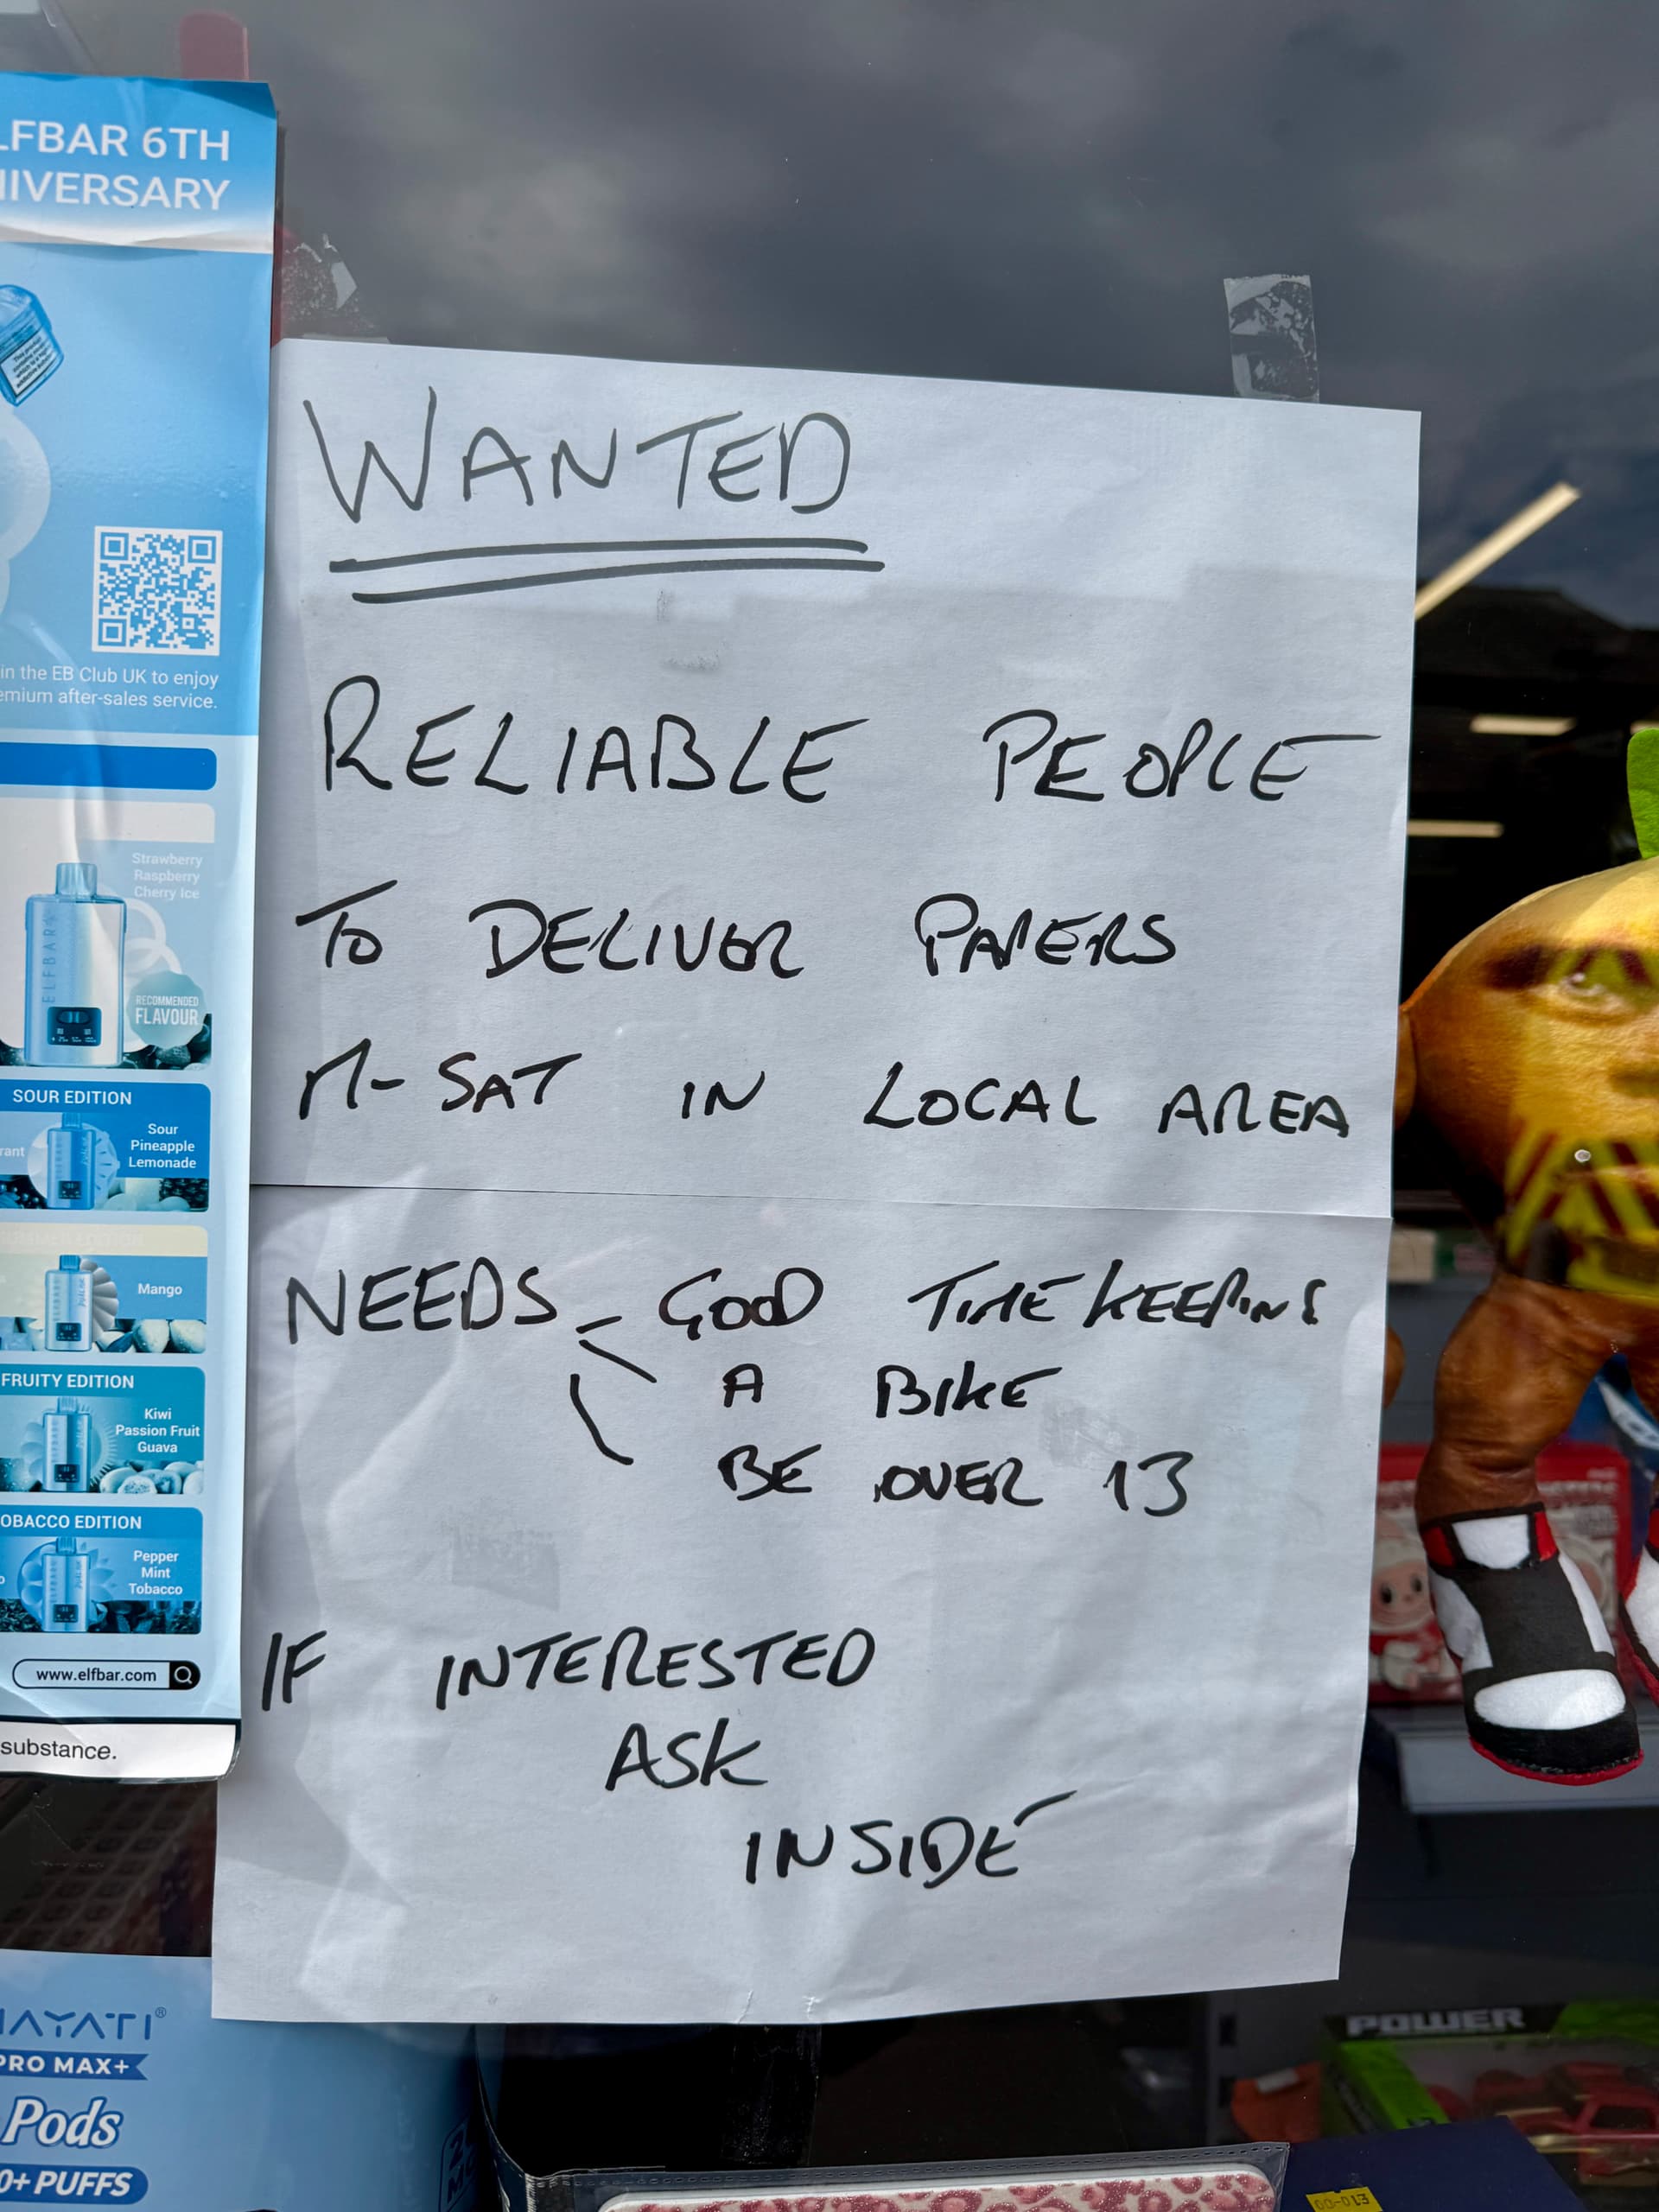 LFBAR 6TH
NIVERSARY
in the EB Club UK to enjoy
emium after-sales service.
Strawberry
Raspberry
Cherry Ice
ELFBAR
RECOMMENDED
FLAVOUR
SOUR EDITION
Sour
Pineapple
Lemonade
Mango
FRUITY EDITION
Kiwi
Passion Fruit
Guava
OBACCO EDITION
Pepper
Mint
Tobacco
www.elfbar.com
substance.
HAYATI®
PRO MAX+
Pods
0+ PUFFS
WANTED
RELIABLE PEOPLE
TO DELIVER PAPERS
M-SAT IN LOCAL AREA
NEEDS - GOOD TIMEKEEPING
A BIKE
BE OVER 13
IF INTERESTED
ASK
INSIDE
POWER